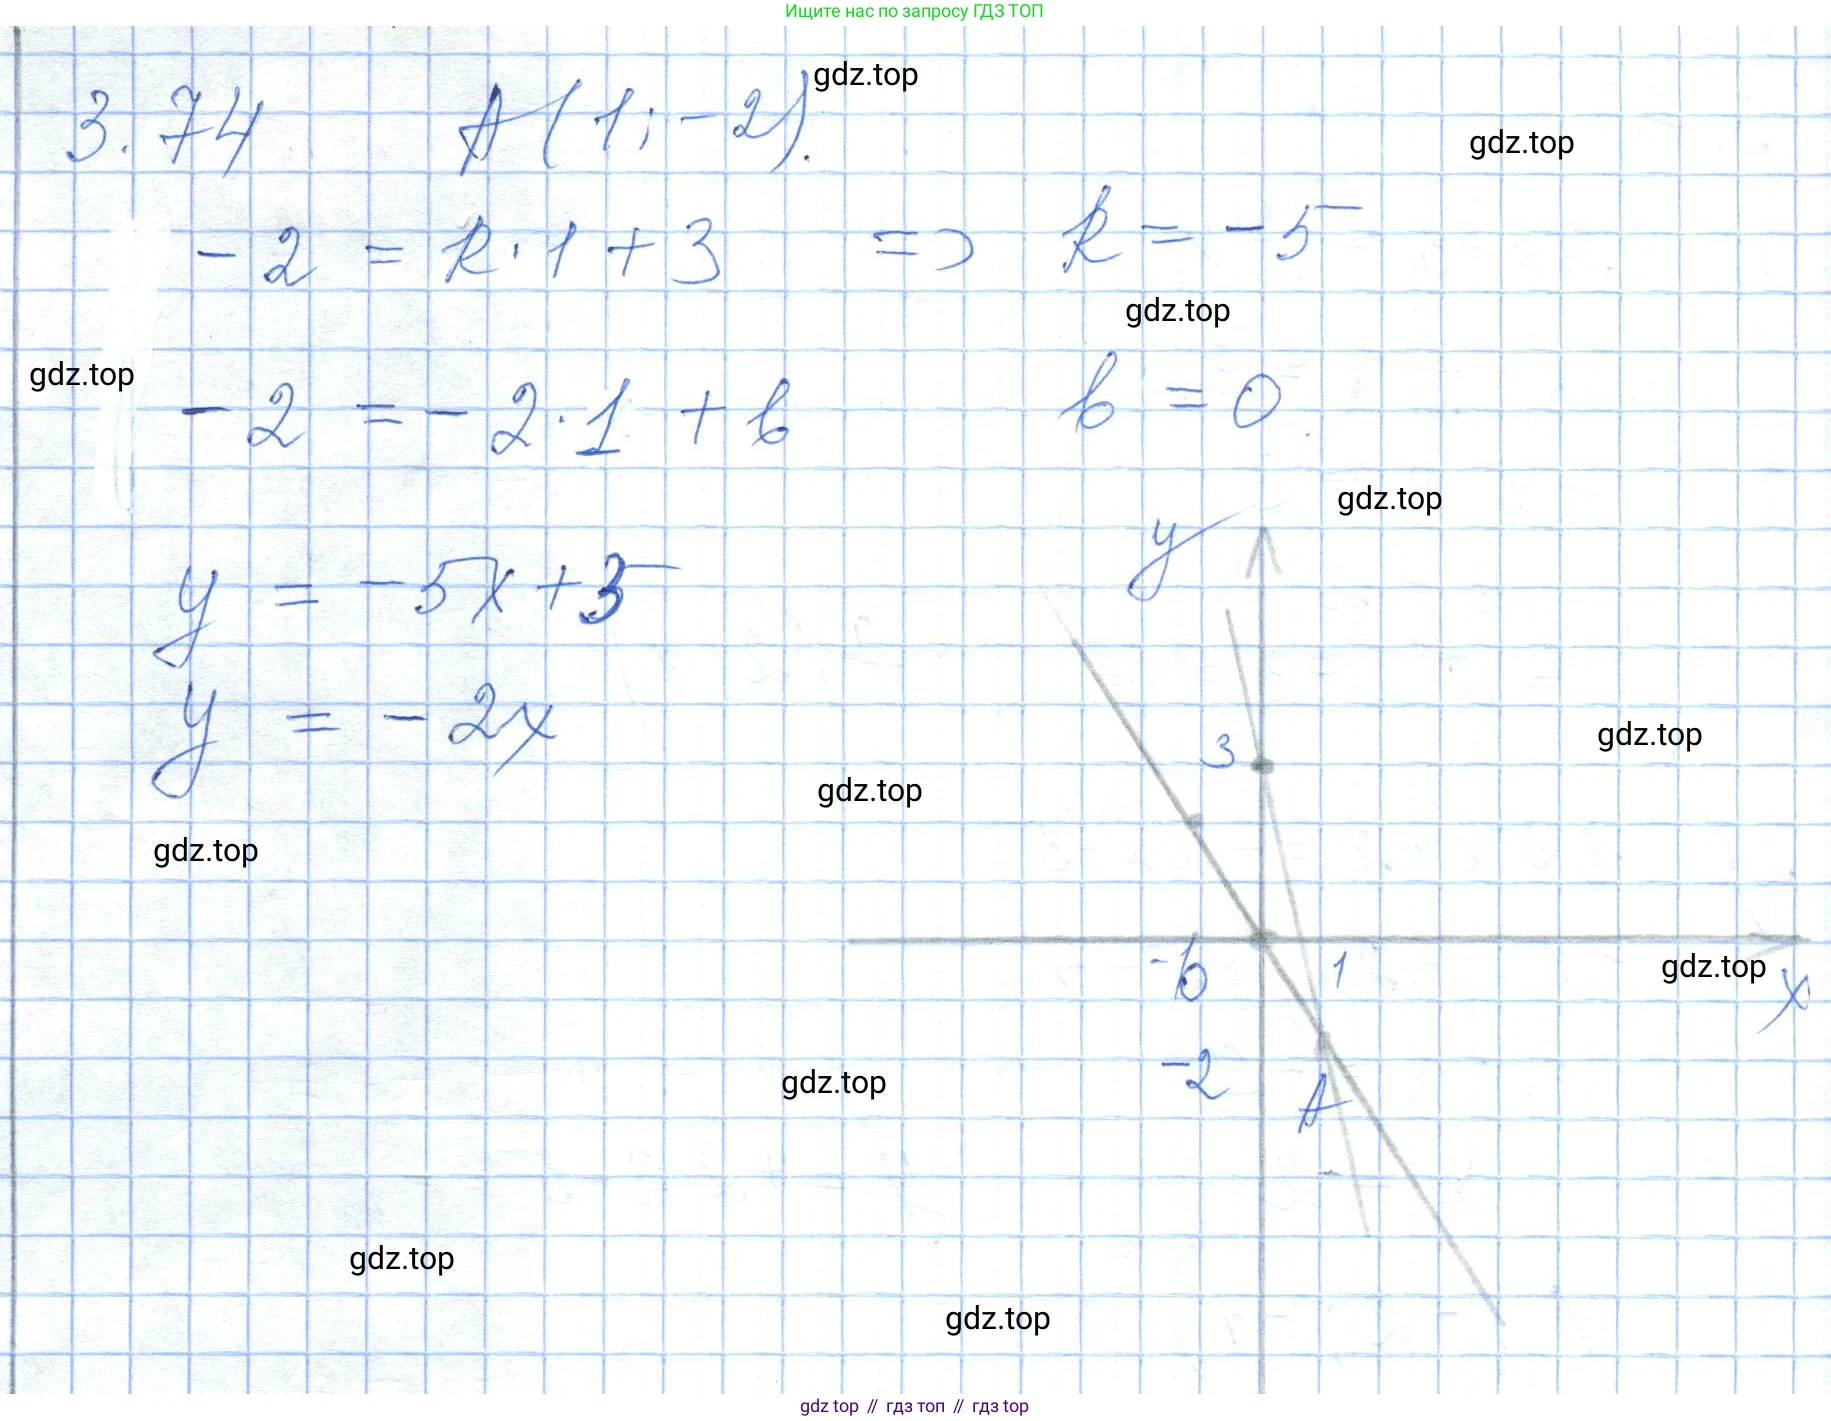 Ищите нас по запросу ГДЗ ТОП
gdz.top
3.74 A(1; -2).
gdz.top
-2 = k·1 + 3 => k = -5
gdz.top
gdz.top
-2 = -2·1 + b b = 0.
gdz.top
y
y = -5x + 3
y = -2x
gdz.top
3
gdz.top
gdz.top
1
gdz.top
x
-2
gdz.top
A
gdz.top
gdz.top
gdz top // гдз топ // гдз top